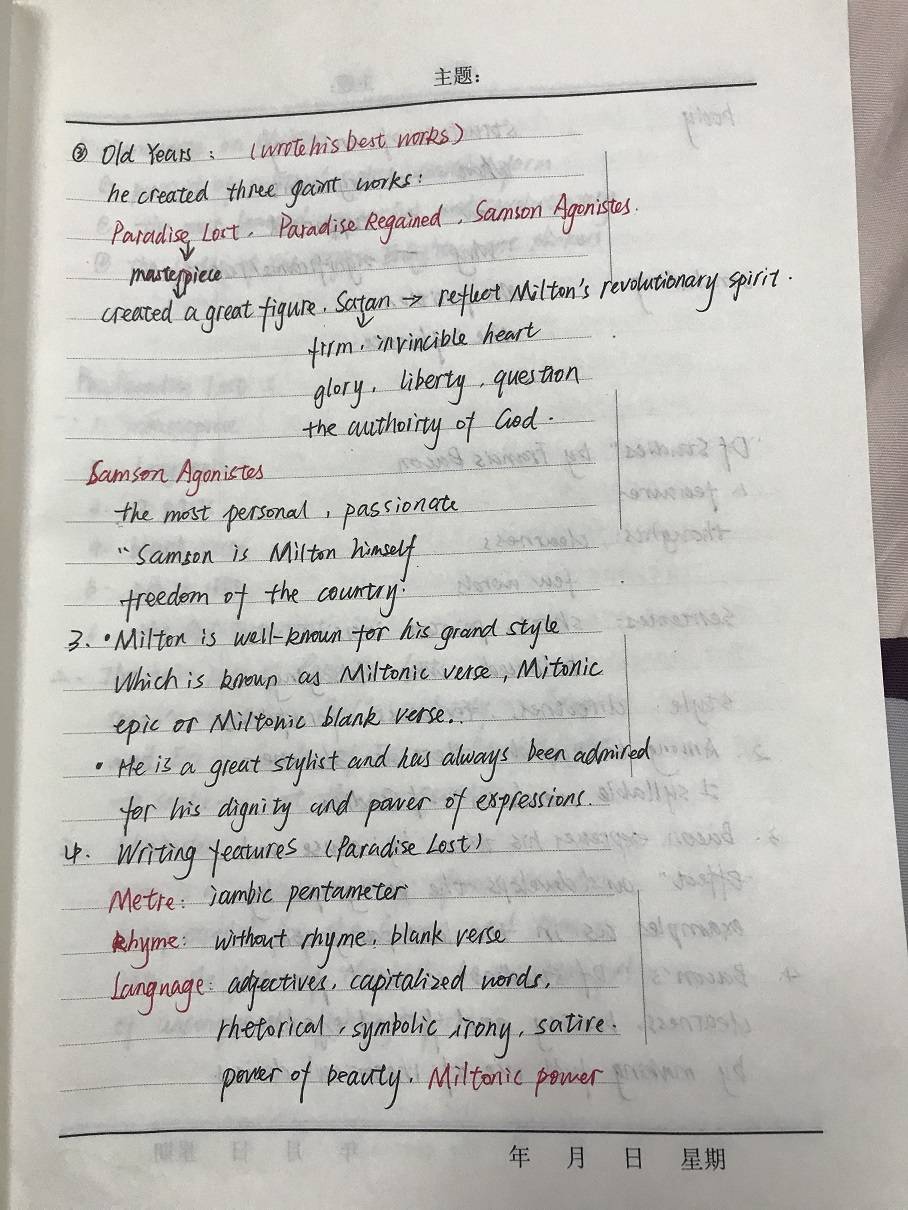 主题:
③ Old Years : (wrote his best works)
he created three gaint works:
Paradise Lost. Paradise Regained. Samson Agonistes.
↓
masterpiece
created a great figure. Satan → reflect Milton's revolutionary spirit.
↓
firm. invincible heart
glory. liberty. question
the authoirty of God.
Samson Agonistes
the most personal, passionate
"Samson is Milton himself
freedom of the country.
3. • Milton is well-known for his grand style
Which is known as Miltonic verse, Mitonic
epic or Miltonic blank verse.
• He is a great stylist and has always been admired
for his dignity and power of expressions.
4. Writing features (Paradise Lost)
Metre: iambic pentameter
Rhyme: without rhyme. blank verse
Langnage: adjectives. capitalized words.
rhetorical. symbolic irony. satire.
power of beauty. Miltonic power
年 月 日 星期